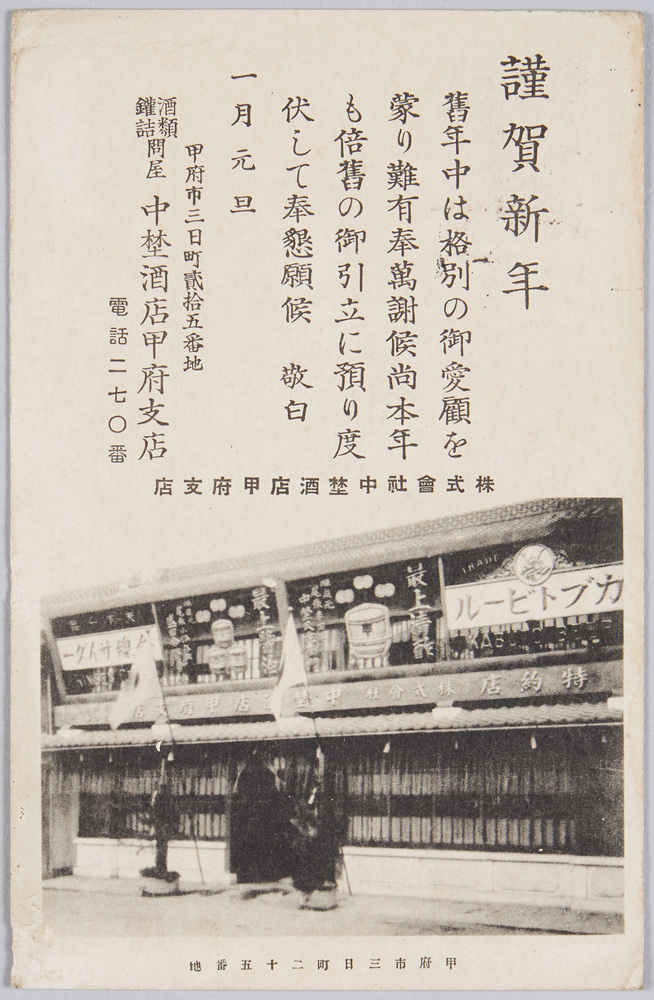 謹賀新年
舊年中は格別の御愛顧を
蒙り難有奉萬謝候尚本年
も倍舊の御引立に預り度
伏して奉懇願候 敬白
一月元旦
甲府市三日町貳拾五番地
酒類
鑵詰
問屋
中埜酒店甲府支店
電話二七〇番
株式會社中埜酒店甲府支店
TRADE
カブトビール
KABUTO BEER
最上清酒
特約店
株式會社中埜酒店甲府支店
甲府市三日町二十五番地